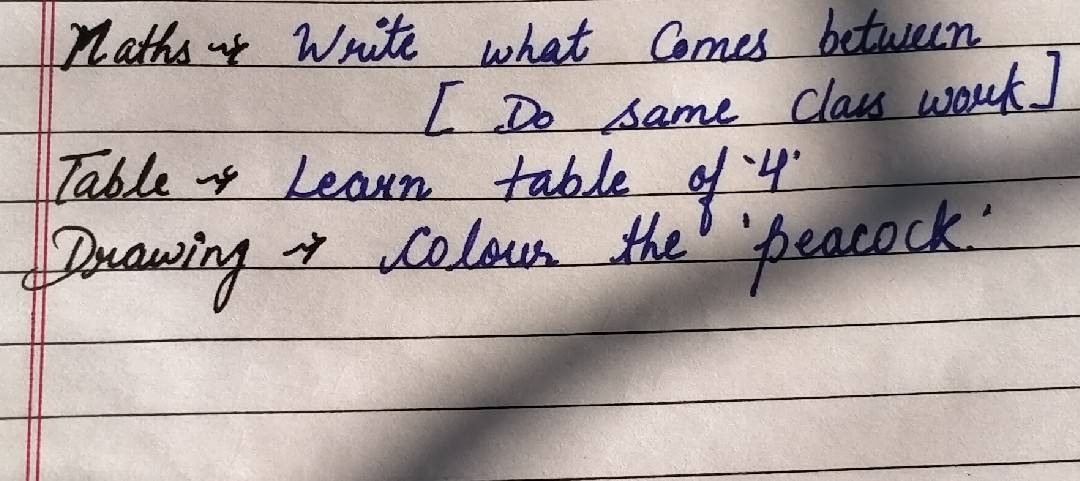 Maths → Write what Comes between
[ Do same Class work ]
Table → Learn table of '4'
Drawing → Colour the 'peacock.'